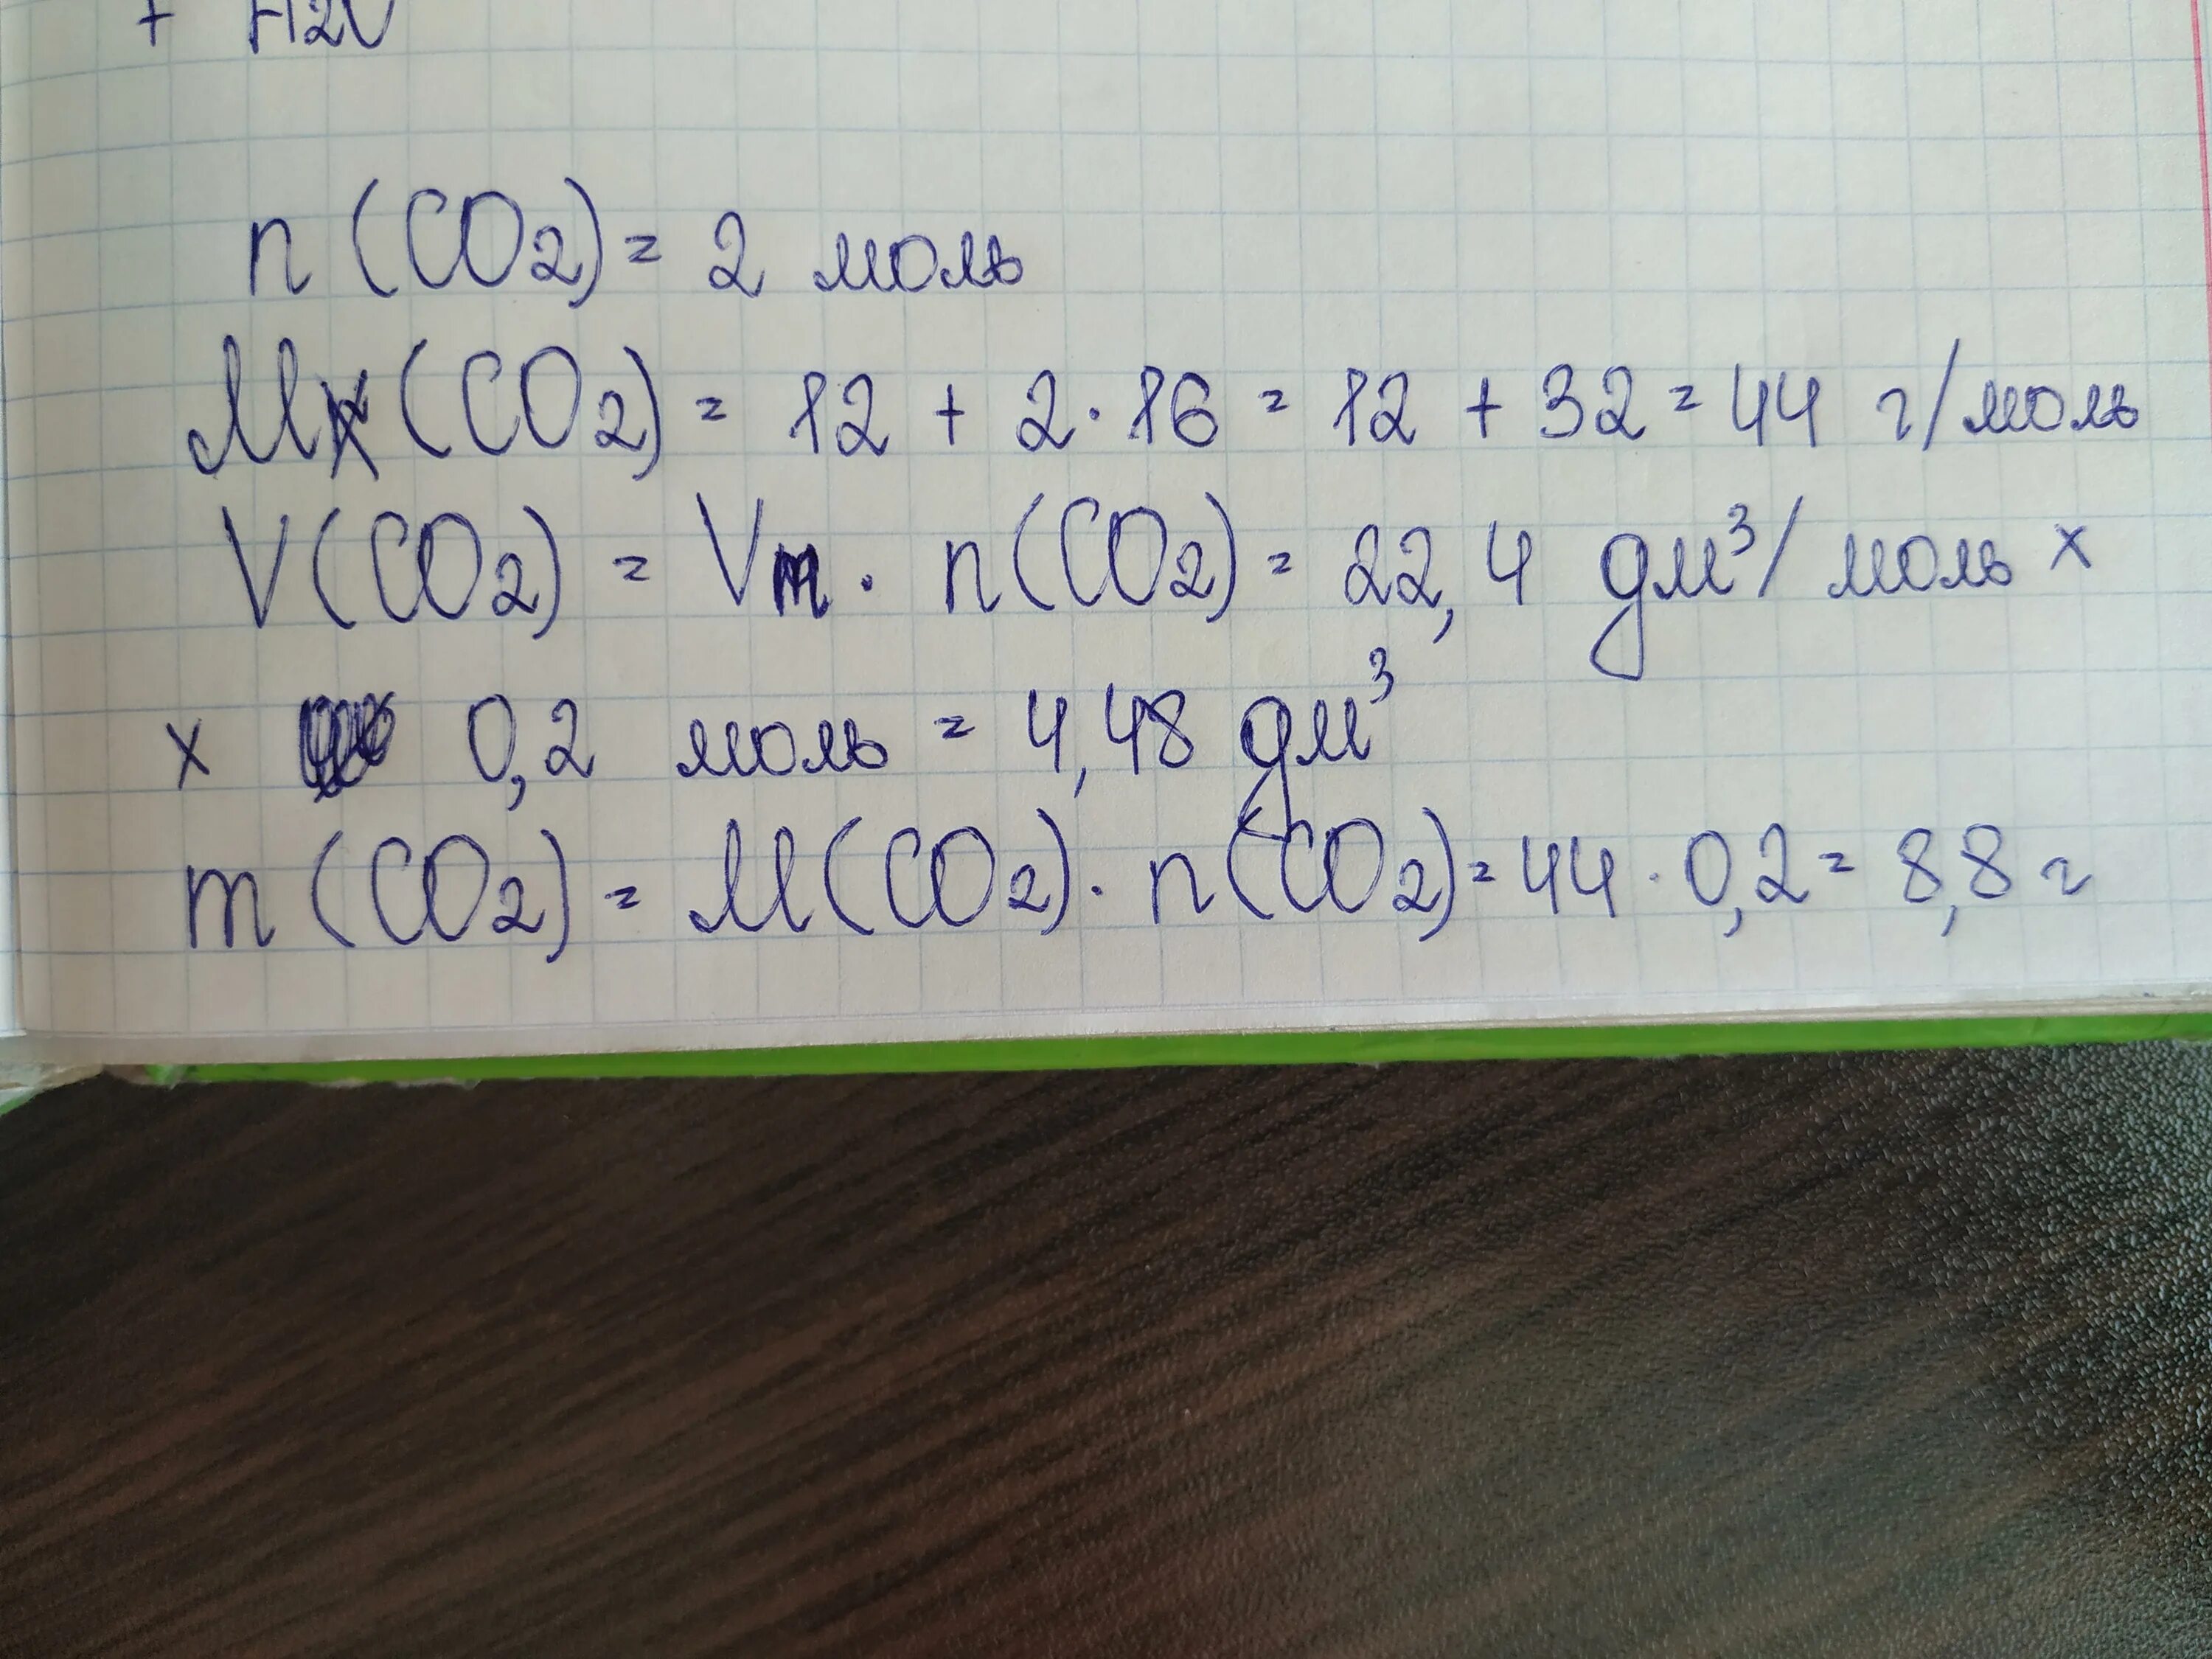 + H2O
n (CO2) = 2 моль
M (CO2) = 12 + 2·16 = 12 + 32 = 44 г/моль
V(CO2) = Vm · n(CO2) = 22,4 дм³/моль ×
× 0,2 моль = 4,48 дм³
m (CO2) = M(CO2)· n(CO2) = 44 · 0,2 = 8,8 г